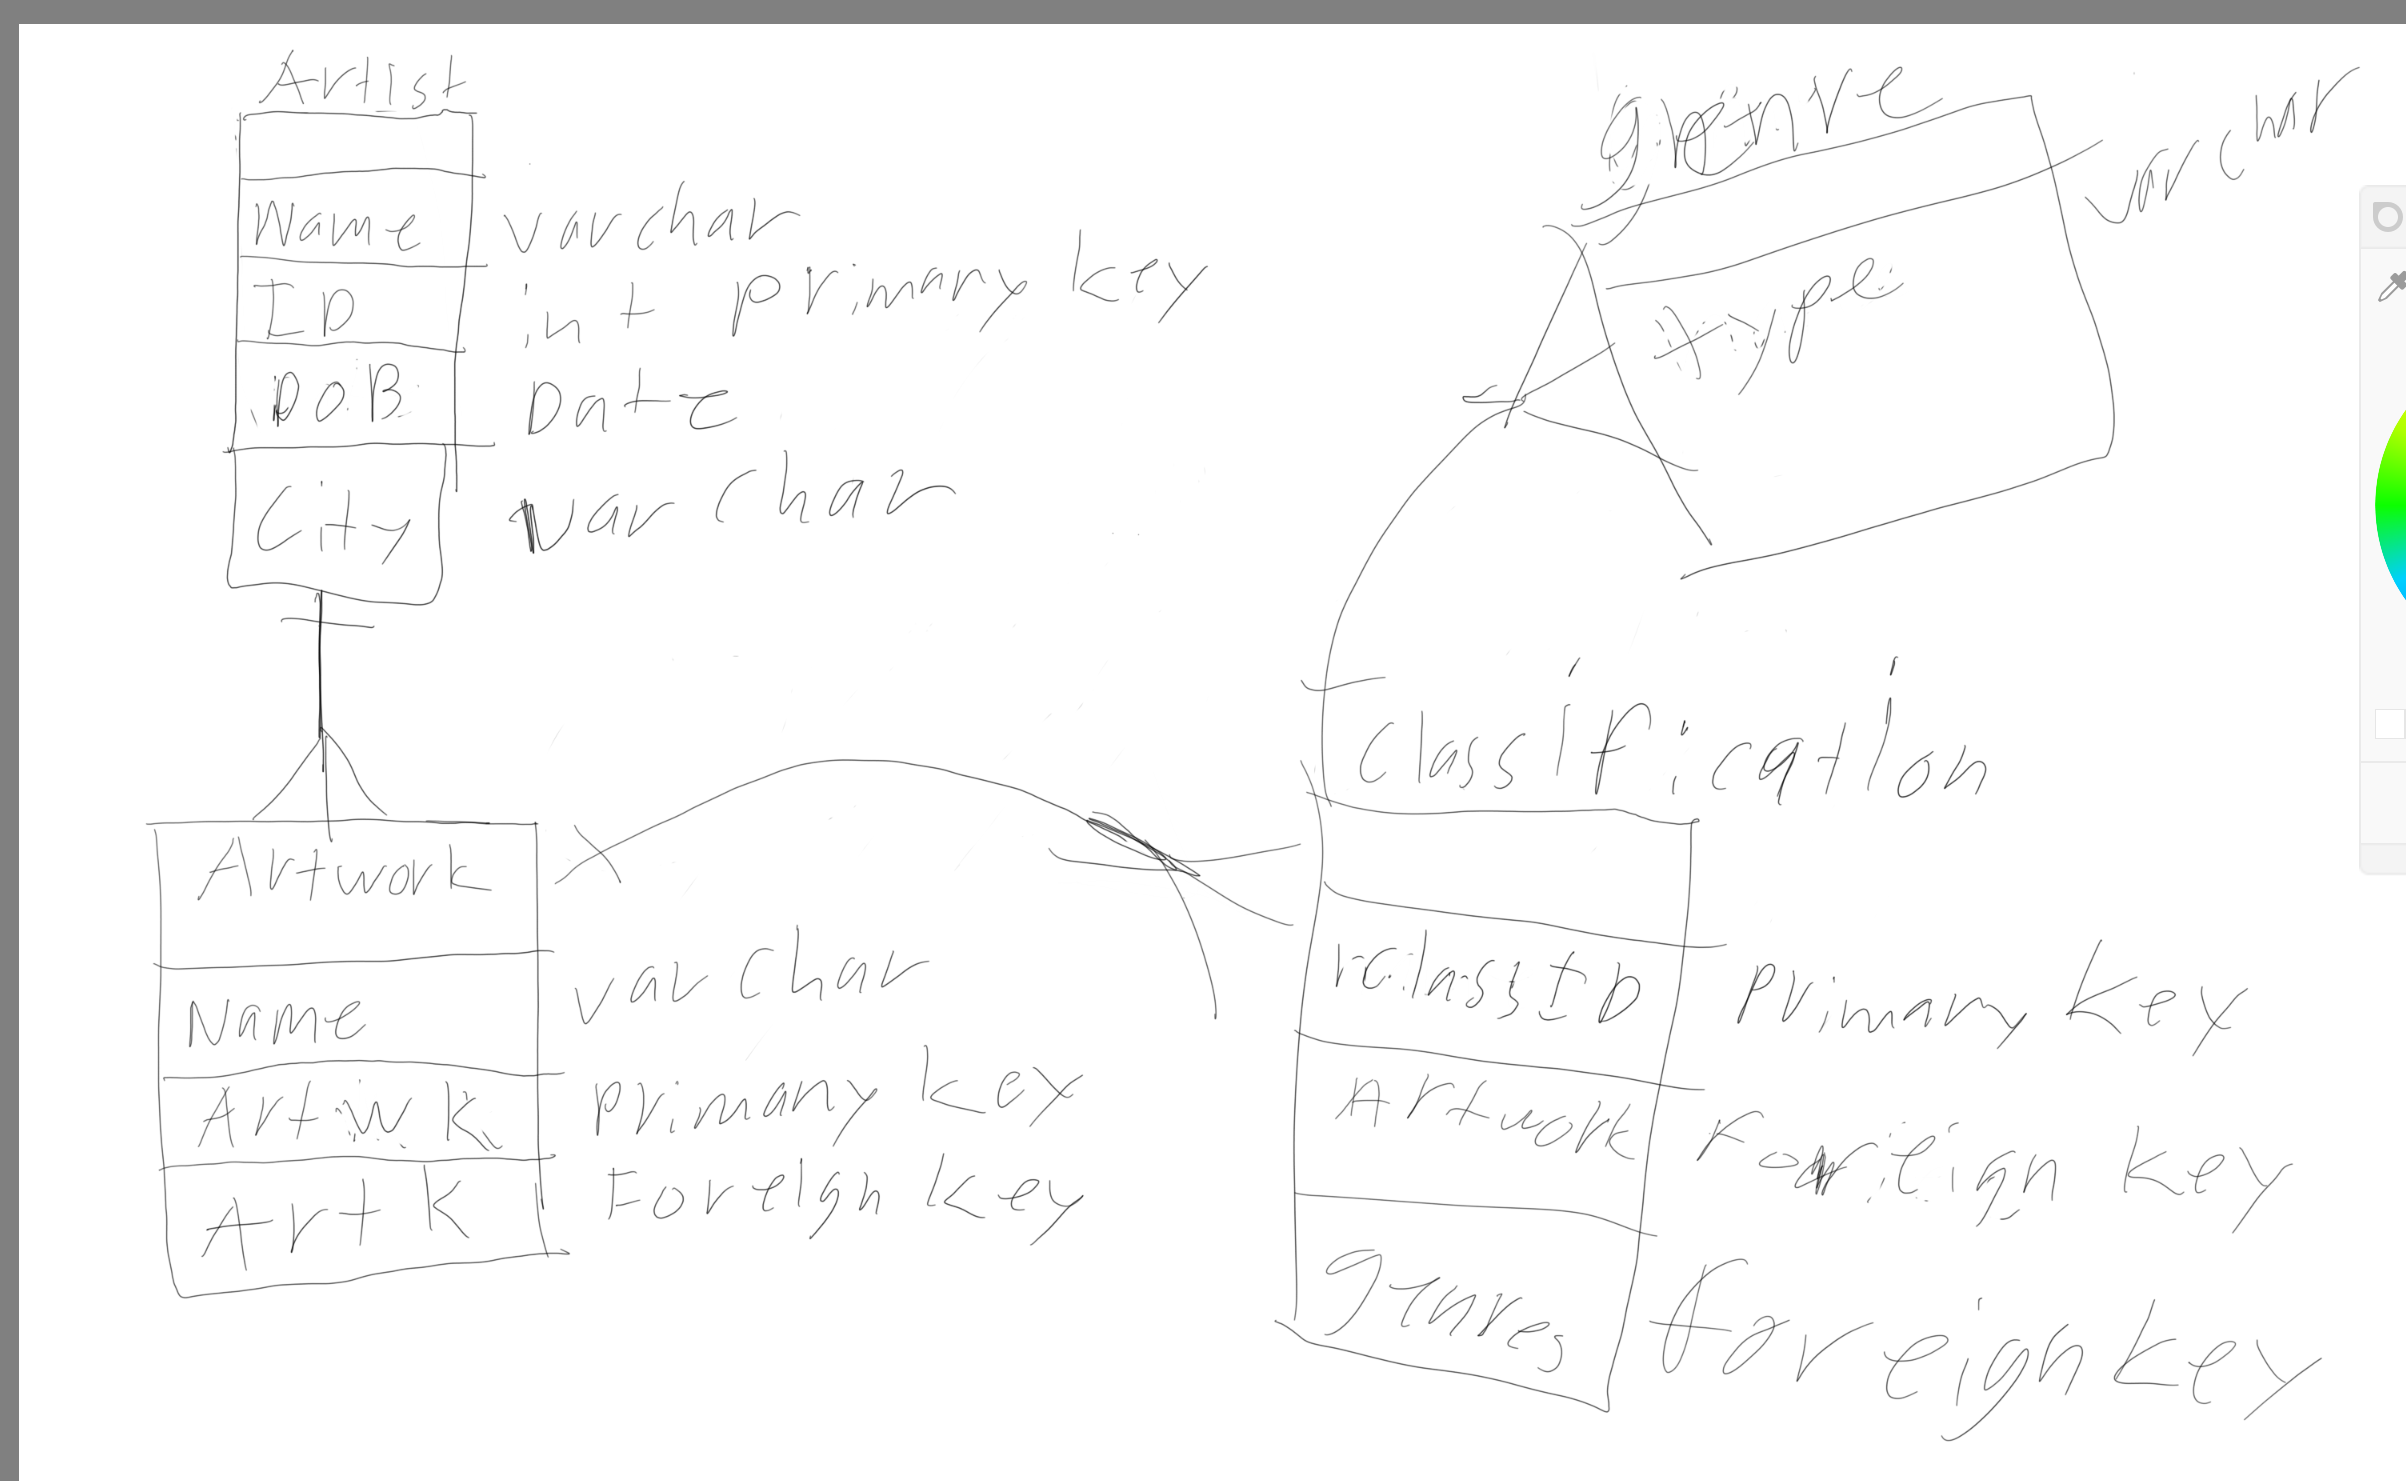 Artist
Name varchar
ID int primary key
DOB Date
City varchar
genre
varchar
type
Artwork
Name varchar
Artwk primary key
Art K Foreign key
Classification
classID primary key
Artwork Foreign key
genres foreign key